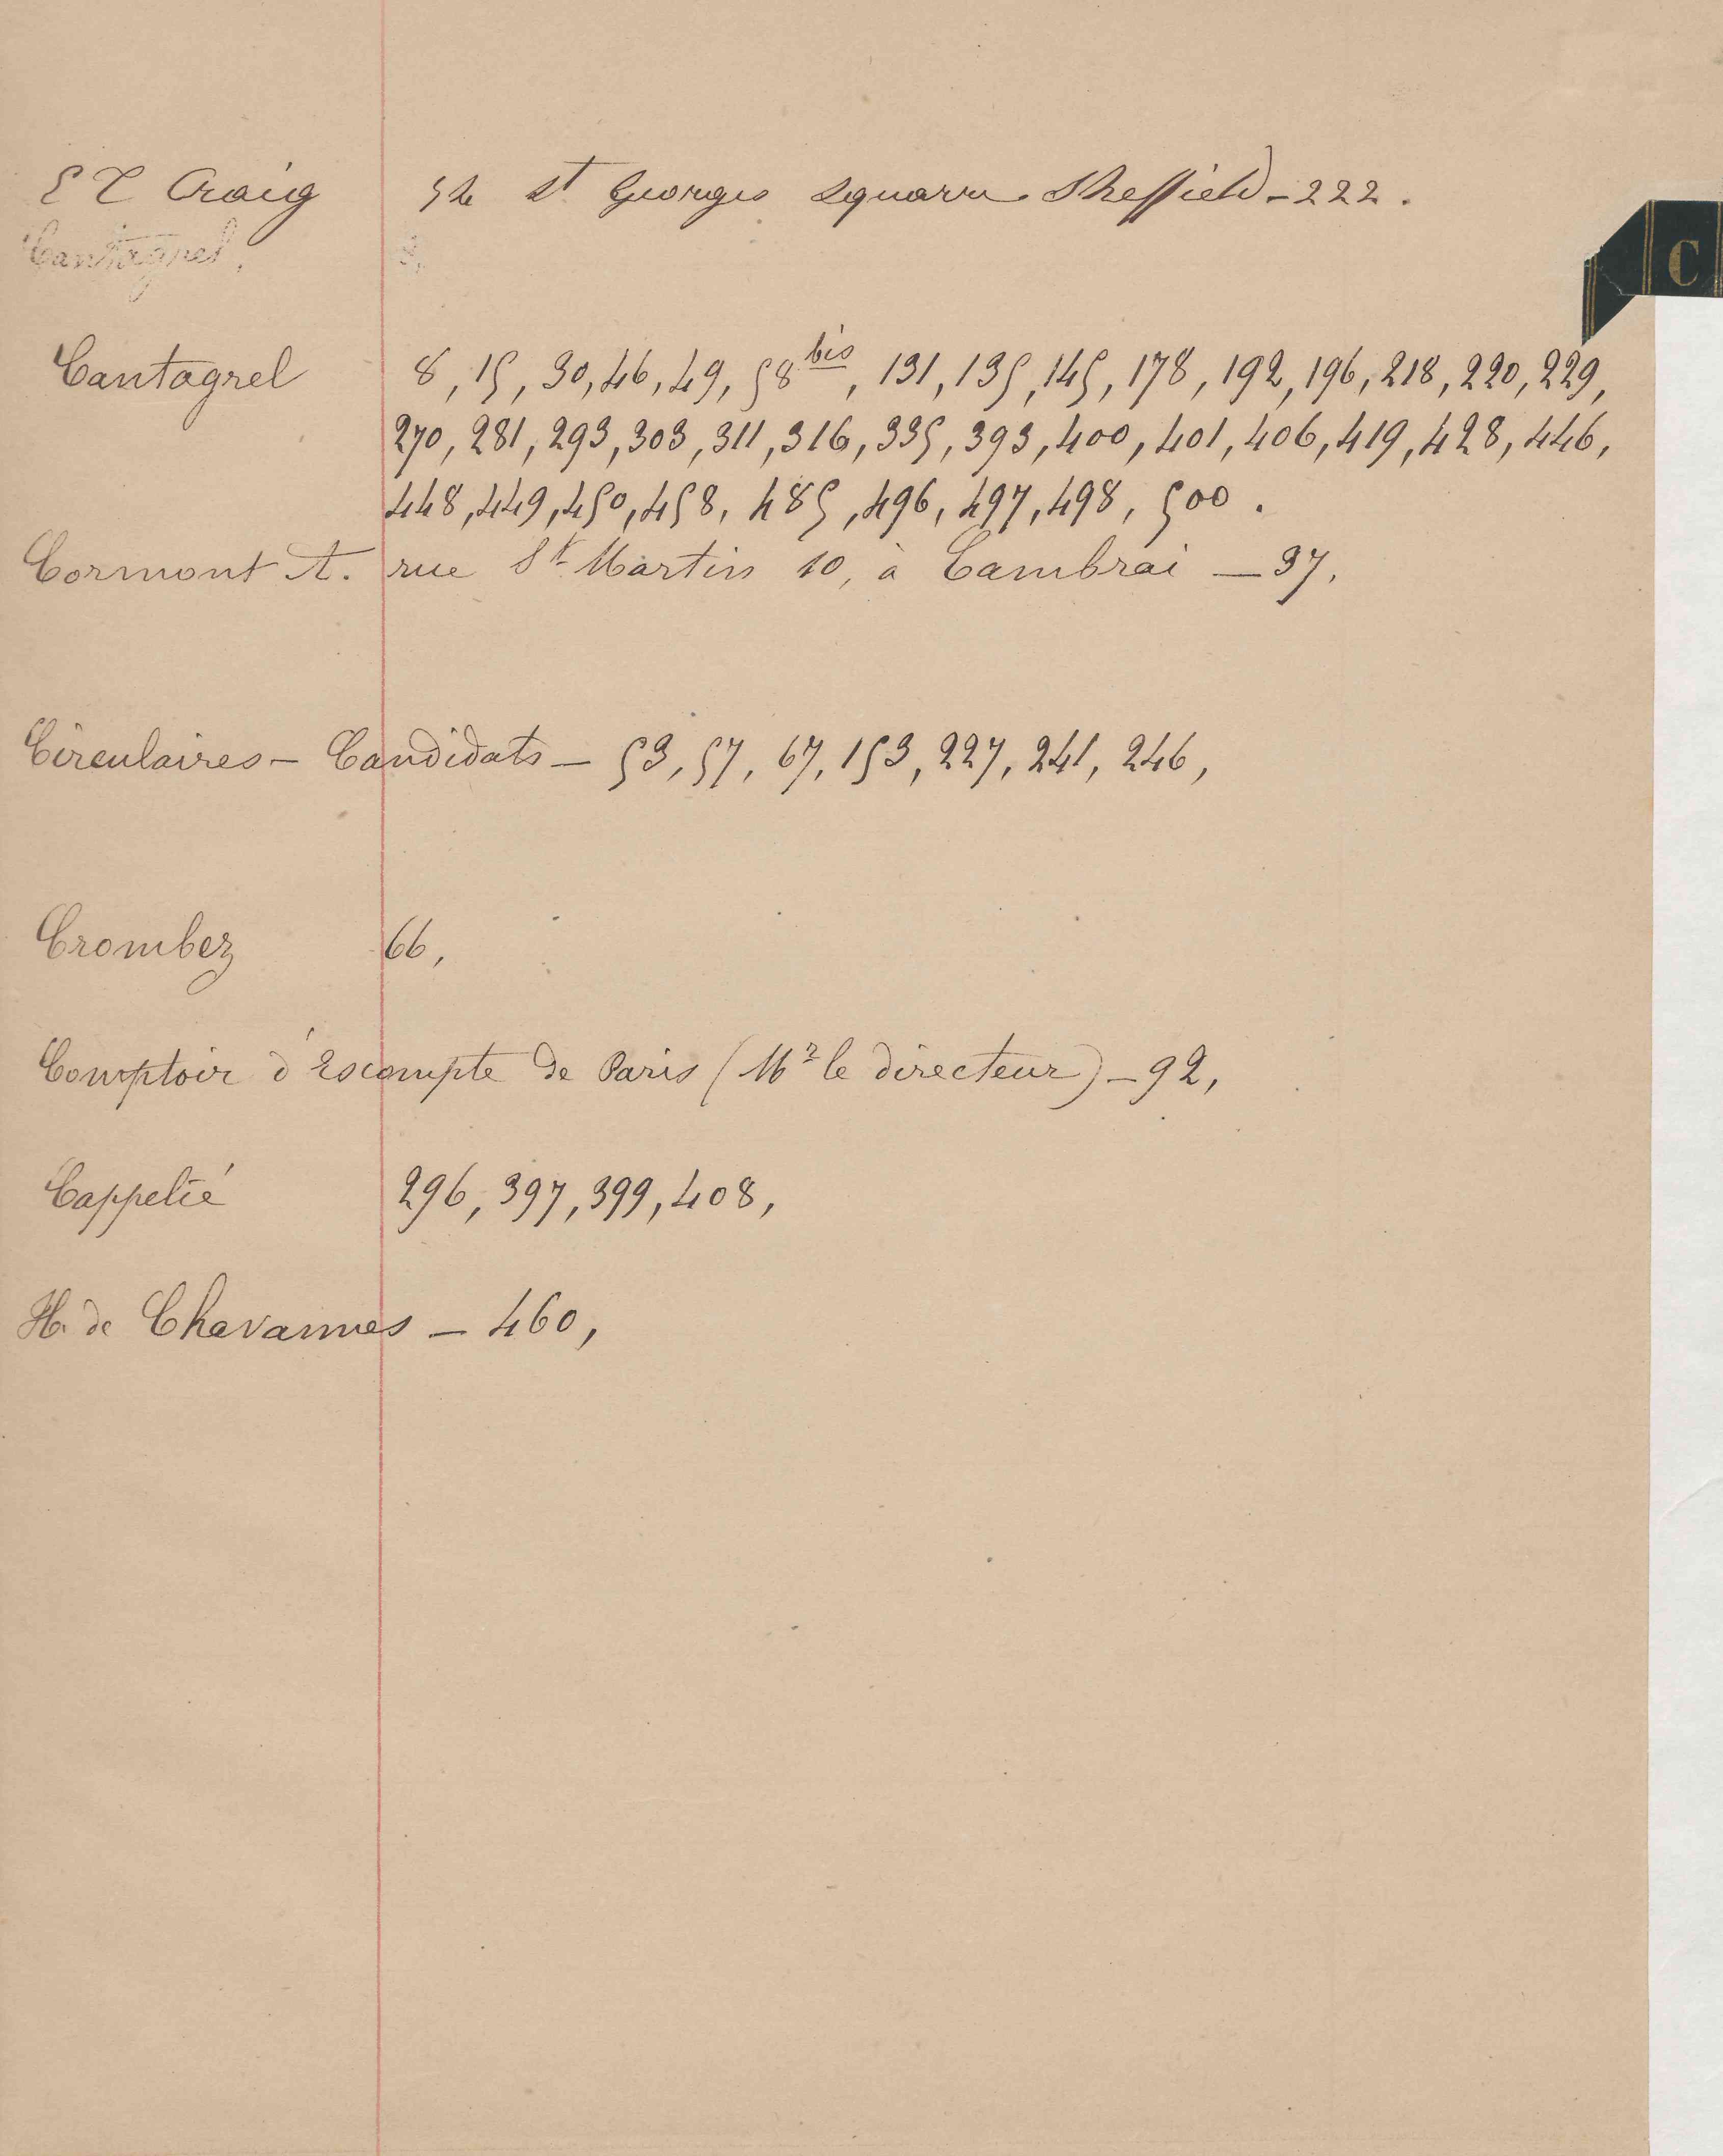 E T Craig 54 St Georges Squarre Sheffield - 222.
Cantagrel,
C
Cantagrel 8, 15, 30, 46, 49, 58 bis, 131, 135, 145, 178, 192, 196, 218, 220, 229,
270, 281, 293, 303, 311, 316, 335, 393, 400, 401, 406, 419, 428, 446,
448, 449, 450, 458, 485, 496, 497, 498, 500.
Cormont A. rue St Martin 10, à Cambrai — 37.
Circulaires - Candidats — 53, 57, 67, 153, 227, 241, 246,
Crombez 66,
Comptoir d'Escompte de Paris (Mr le directeur) - 92,
Cappelié 296, 397, 399, 408,
H. de Chavannes — 460,